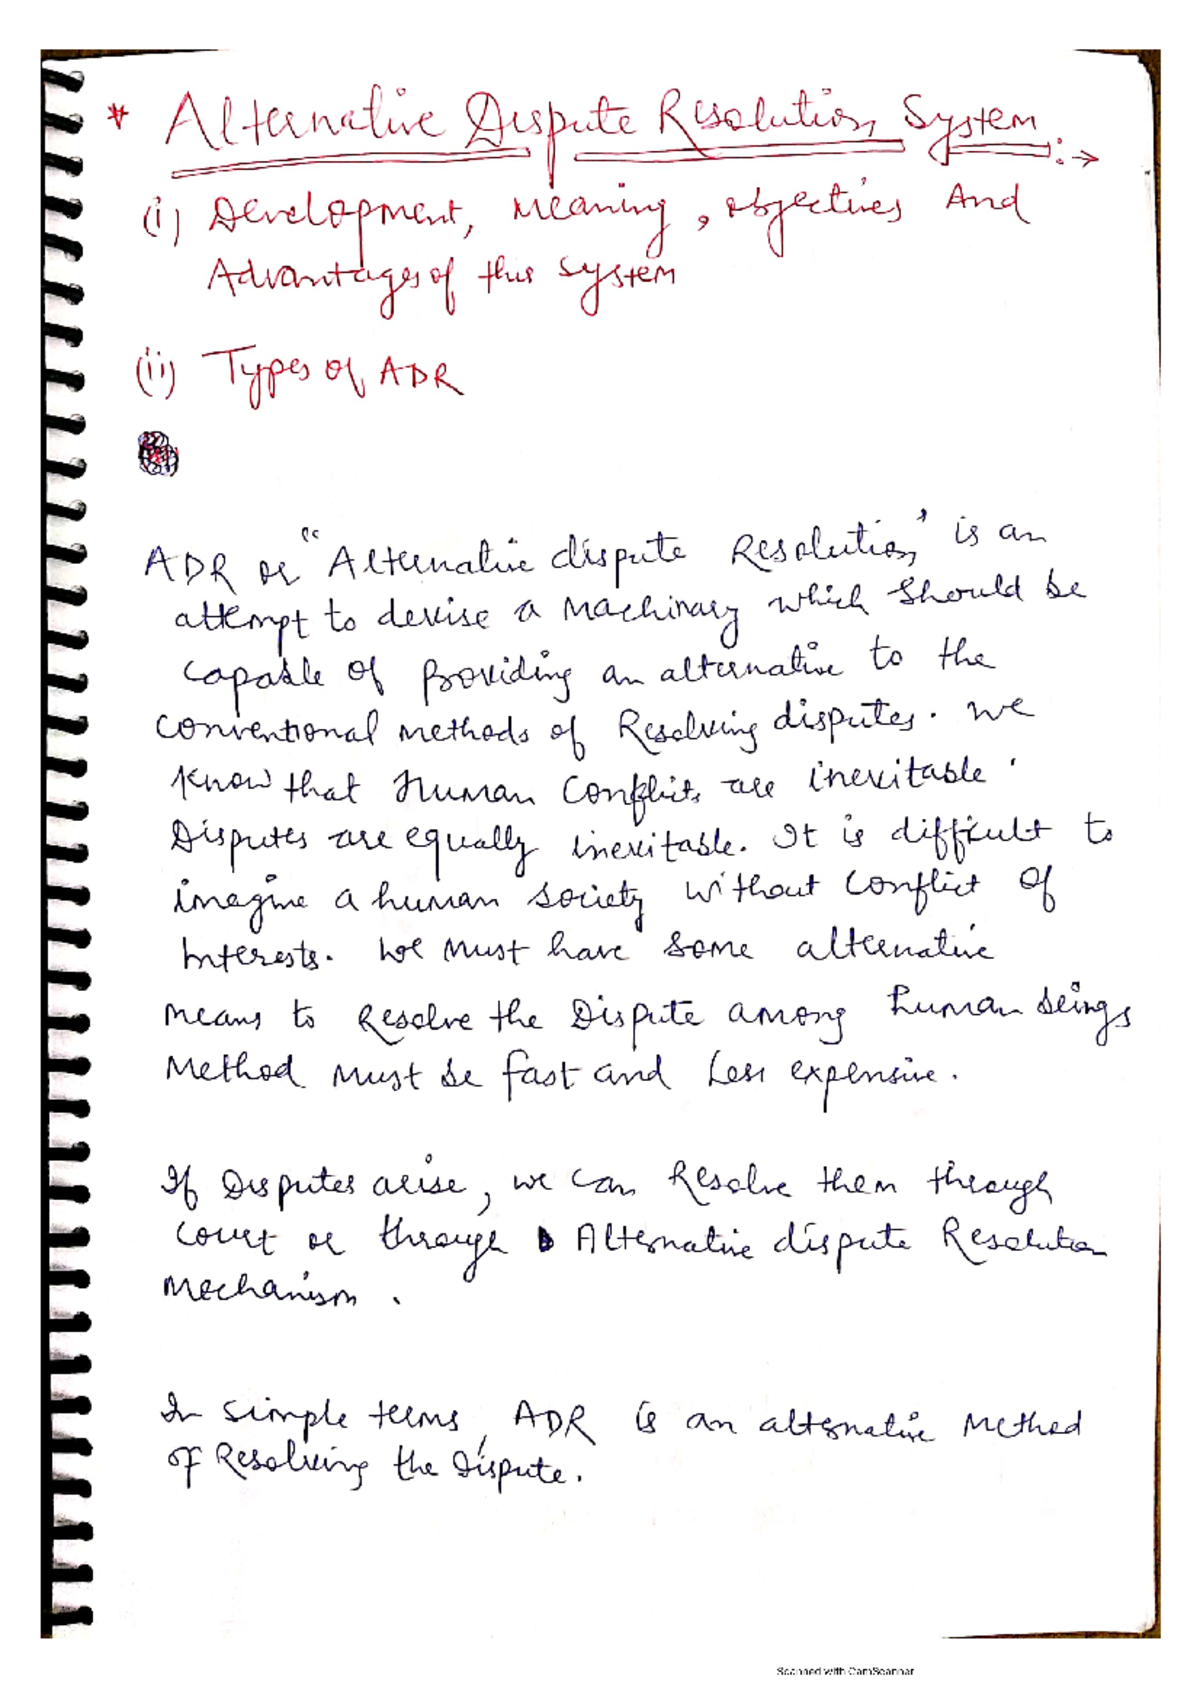 * Alternative Dispute Resolution System :→
(i) Development, Meaning, objectives And
Advantages of this System
(ii) Types of ADR
ADR or "Alternative dispute Resolution' is an
attempt to devise a Machinary which should be
capable of Providing an alternative to the
conventional methods of Resolving disputes. We
know that Human Conflicts are inevitable.
Disputes are equally inevitable. It is difficult to
imagine a human society without conflict of
interests. We must have some alternative
means to Resolve the Dispute among human beings
Method must be fast and Less expensive.
If Disputes arise, we can Resolve them through
court or through Alternative dispute Resolution
Mechanism.
In simple terms, ADR is an alternative Method
of Resolving the Dispute.
Scanned with CamScanner